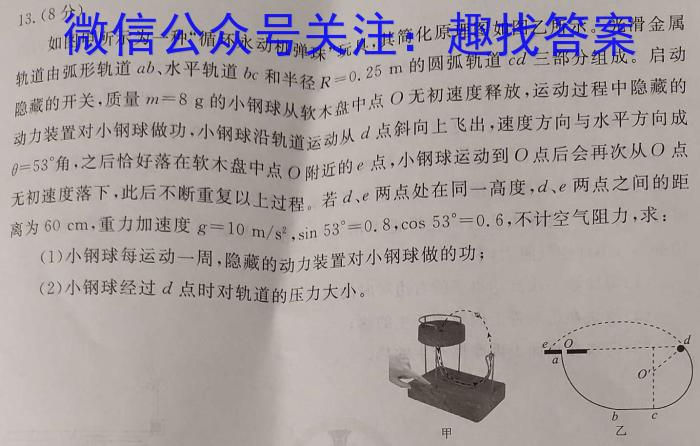 13.(8分)
微信公众号关注：趣找答案
如图甲所示为一种“循环永动机弹珠”玩具,其简化原理图如图乙所示。光滑金属
轨道由弧形轨道 ab、水平轨道 bc 和半径 R=0.25 m 的圆弧轨道 cd 三部分组成。启动
隐藏的开关,质量 m=8 g 的小钢球从软木盘中点 O 无初速度释放,运动过程中隐藏的
动力装置对小钢球做功,小钢球沿轨道运动从 d 点斜向上飞出,速度方向与水平方向成
θ=53°角,之后恰好落在软木盘中点 O 附近的 e 点,小钢球运动到 O 点后会再次从 O 点
无初速度落下,此后不断重复以上过程。若 d、e 两点处在同一高度,d、e 两点之间的距
离为 60 cm,重力加速度 g=10 m/s²,sin 53°=0.8,cos 53°=0.6,不计空气阻力,求:
(1)小钢球每运动一周,隐藏的动力装置对小钢球做的功;
(2)小钢球经过 d 点时对轨道的压力大小。
e O d
a
O′
b c
甲 乙